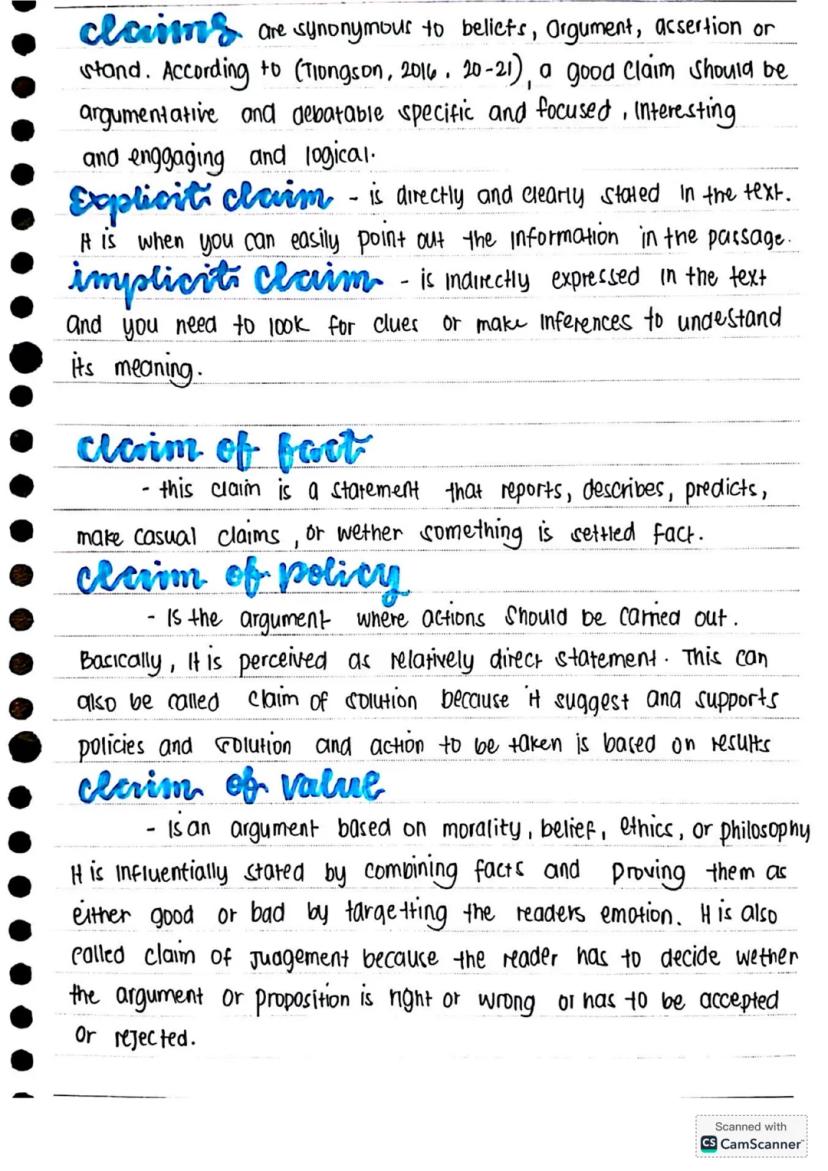 claims are synonymous to beliefs, argument, assertion or
stand. According to (Tiongson, 2016, 20-21), a good claim should be
argumentative and debatable specific and focused, Interesting
and enggaging and logical.
Explicit claim - is directly and clearly stated in the text.
It is when you can easily point out the information in the passage.
implicit claim - is indirectly expressed in the text
and you need to look for clues or make inferences to undestand
its meaning.
claim of fact
- this claim is a statement that reports, describes, predicts,
make casual claims, or wether something is settled fact.
claim of policy
- Is the argument where actions should be carried out.
Basically, it is perceived as relatively direct statement. This can
also be called claim of solution because it suggest and supports
policies and solution and action to be taken is based on results
claim of value
- is an argument based on morality, belief, ethics, or philosophy
It is influentially stated by combining facts and proving them as
either good or bad by targetting the readers emotion. It is also
called claim of judgement because the reader has to decide wether
the argument or proposition is right or wrong or has to be accepted
or rejected.
Scanned with
CS CamScanner